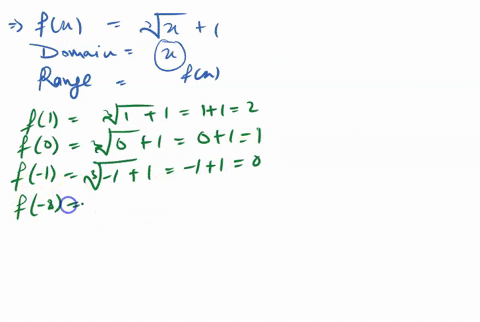 ⇒ f(x) = ∛x + 1
Domain = x
Range = f(x)
f(1) = ∛1 + 1 = 1+1 = 2
f(0) = ∛0 + 1 = 0+1 = 1
f(-1) = ∛-1 + 1 = -1+1 = 0
f(-8) =